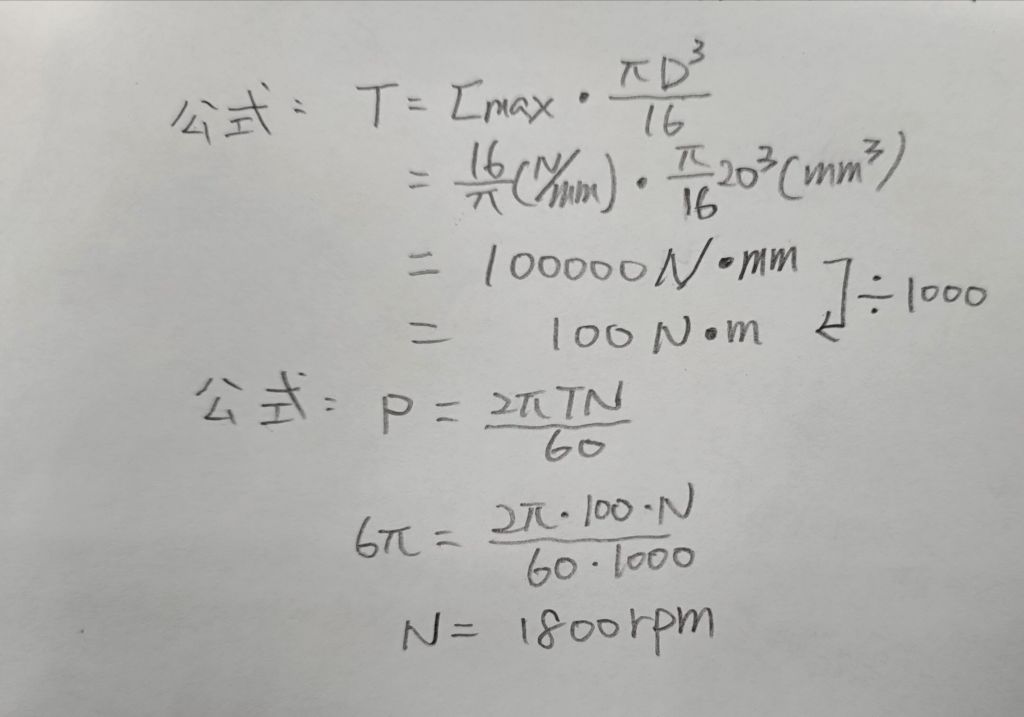 公式: T = τmax · πD³/16
= 16/π (N/mm) · π/16 20³ (mm³)
= 100000 N·mm
= 100 N·m ÷1000
公式: P = 2πTN/60
6π = 2π·100·N/60·1000
N = 1800rpm